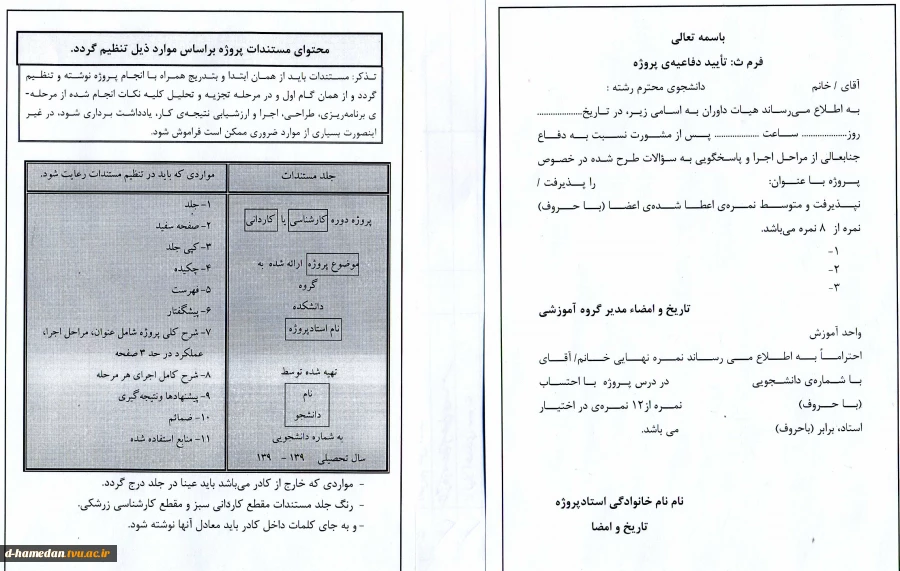 باسمه تعالی
فرم ث: تأیید دفاعیه‌ی پروژه
آقای / خانم دانشجوی محترم رشته :
به اطلاع می‌رساند هیات داوران به اسامی زیر، در تاریخ......................
روز...................... ساعت ...................... پس از مشورت نسبت به دفاع
جنابعالی از مراحل اجرا و پاسخگویی به سؤالات طرح شده در خصوص
پروژه با عنوان: را پذیرفت /
نپذیرفت و متوسط نمره‌ی اعطا شده‌ی اعضا (با حروف)
نمره از ۸ نمره می‌باشد.
۱-
۲-
۳-
تاریخ و امضاء مدیر گروه آموزشی
واحد آموزش
احتراماً به اطلاع می رساند نمره نهایی خانم/ آقای
با شماره‌ی دانشجویی در درس پروژه با احتساب
(با حروف) نمره از۱۲ نمره‌ی در اختیار
استاد، برابر (باحروف) می باشد.
نام نام خانوادگی استادپروژه
تاریخ و امضا
محتوای مستندات پروژه براساس موارد ذیل تنظیم گردد.
تذکر: مستندات باید از همان ابتدا و بتدریج همراه با انجام پروژه نوشته و تنظیم
گردد و از همان گام اول و در مرحله تجزیه و تحلیل کلیه نکات انجام شده از مرحله-
ی برنامه‌ریزی، طراحی، اجرا و ارزشیابی نتیجه‌ی کار، یادداشت برداری شود، در غیر
اینصورت بسیاری از موارد ضروری ممکن است فراموش شود.
جلد مستندات
پروژه دوره کارشناسی یا کاردانی
موضوع پروژه ارائه شده به
گروه
دانشکده
نام استادپروژه
تهیه شده توسط
نام
دانشجو
به شماره دانشجویی
سال تحصیلی ۱۳۹ – ۱۳۹
مواردی که باید در تنظیم مستندات رعایت شود.
۱- جلد
۲- صفحه سفید
۳- کپی جلد
۴- چکیده
۵- فهرست
۶- پیشگفتار
۷- شرح کلی پروژه شامل عنوان، مراحل اجرا،
عملکرد در حد ۳ صفحه
۸- شرح کامل اجرای هر مرحله
۹- پیشنهادها ونتیجه گیری
۱۰- ضمائم
۱۱- منابع استفاده شده
- مواردی که خارج از کادر می‌باشد باید عینا در جلد درج گردد.
- رنگ جلد مستندات مقطع کاردانی سبز و مقطع کارشناسی زرشکی.
- و به جای کلمات داخل کادر باید معادل آنها نوشته شود.
d-hamedan.tvu.ac.ir